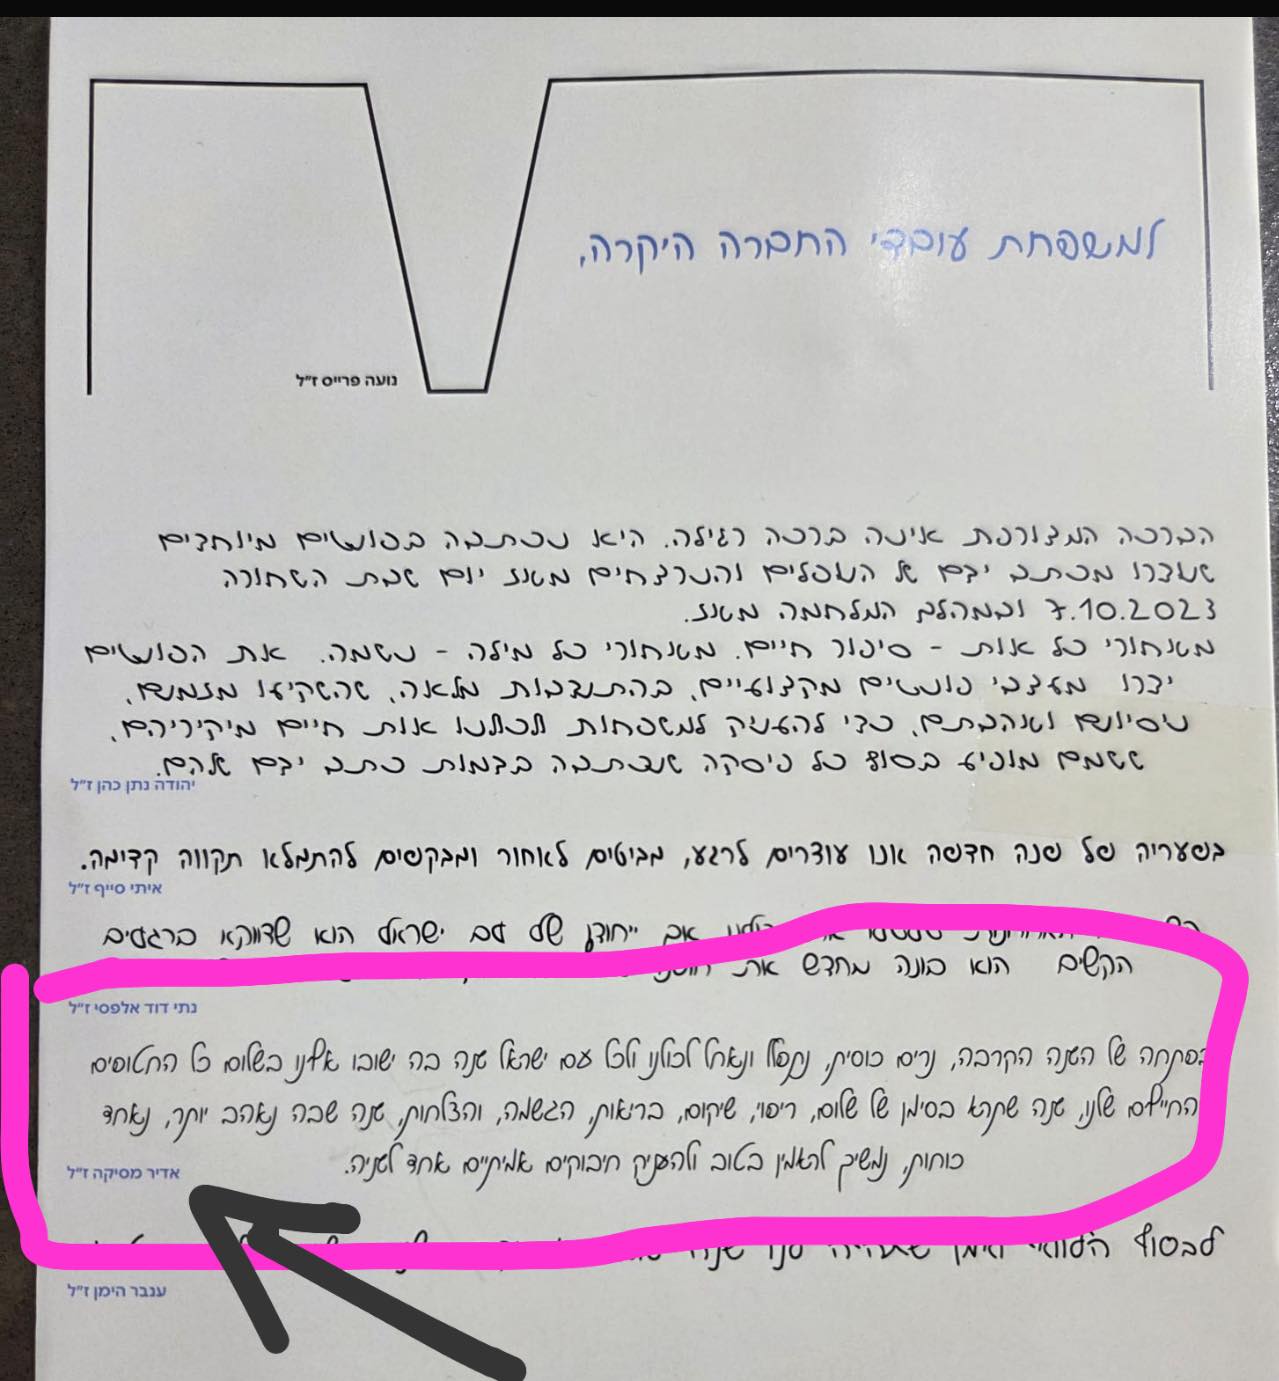 למשפחת עובדי החברה היקרה,
נועה פרייס ז״ל
הברכה המצורפת אינה ברכה רגילה. היא נכתבה בפונטים מיוחדים
שנוצרו מכתב ידם של הנופלים והנרצחים מאז יום שבת השחורה
7.10.2023 ובמהלך המלחמה מאז.
מאחורי כל אות - סיפור חיים. מאחורי כל מילה - נשמה. את הפונטים
יצרו מעצבי פונטים מקצועיים, בהתנדבות מלאה, שהשקיעו מזמנם,
ניסיונם ואהבתם, כדי להעניק למשפחות ולכולנו אות חיים מיקיריהם,
ששמם מופיע בסוף כל פיסקה שנכתבה בדמות כתב ידם שלהם.
יהודה נתן כהן ז״ל
בפעריה של שנה חדשה אנו עוצרים לרגע, מביטים לאחור ומבקשים להתמלא תקווה קדימה.
איתי סייף ז״ל
אך ייחודן של עם ישראל הוא שדווקא ברגעים
הקשים הוא בונה מחדש את
נתי דוד אלפסי ז״ל
בפתחה של השנה הקרבה, נרים כוסית, נתפלל ונאחל לכולנו ולכל עם ישראל שנה בה ישובו אלינו בשלום כל החטופים
החיילים שלנו, שנה שתהא בסימן של שלום, ריפוי, שיקום, בריאות, הגשמה, והצלחות, שנה שבה נאהב יותר, נאחד
כוחות, נמשיך להאמין בטוב ולהעניק חיבוקים אמיתיים אחד לשניה.
אדיר מסיקה ז״ל
לבסוף הלוואי ואמן
ענבר הימן ז״ל